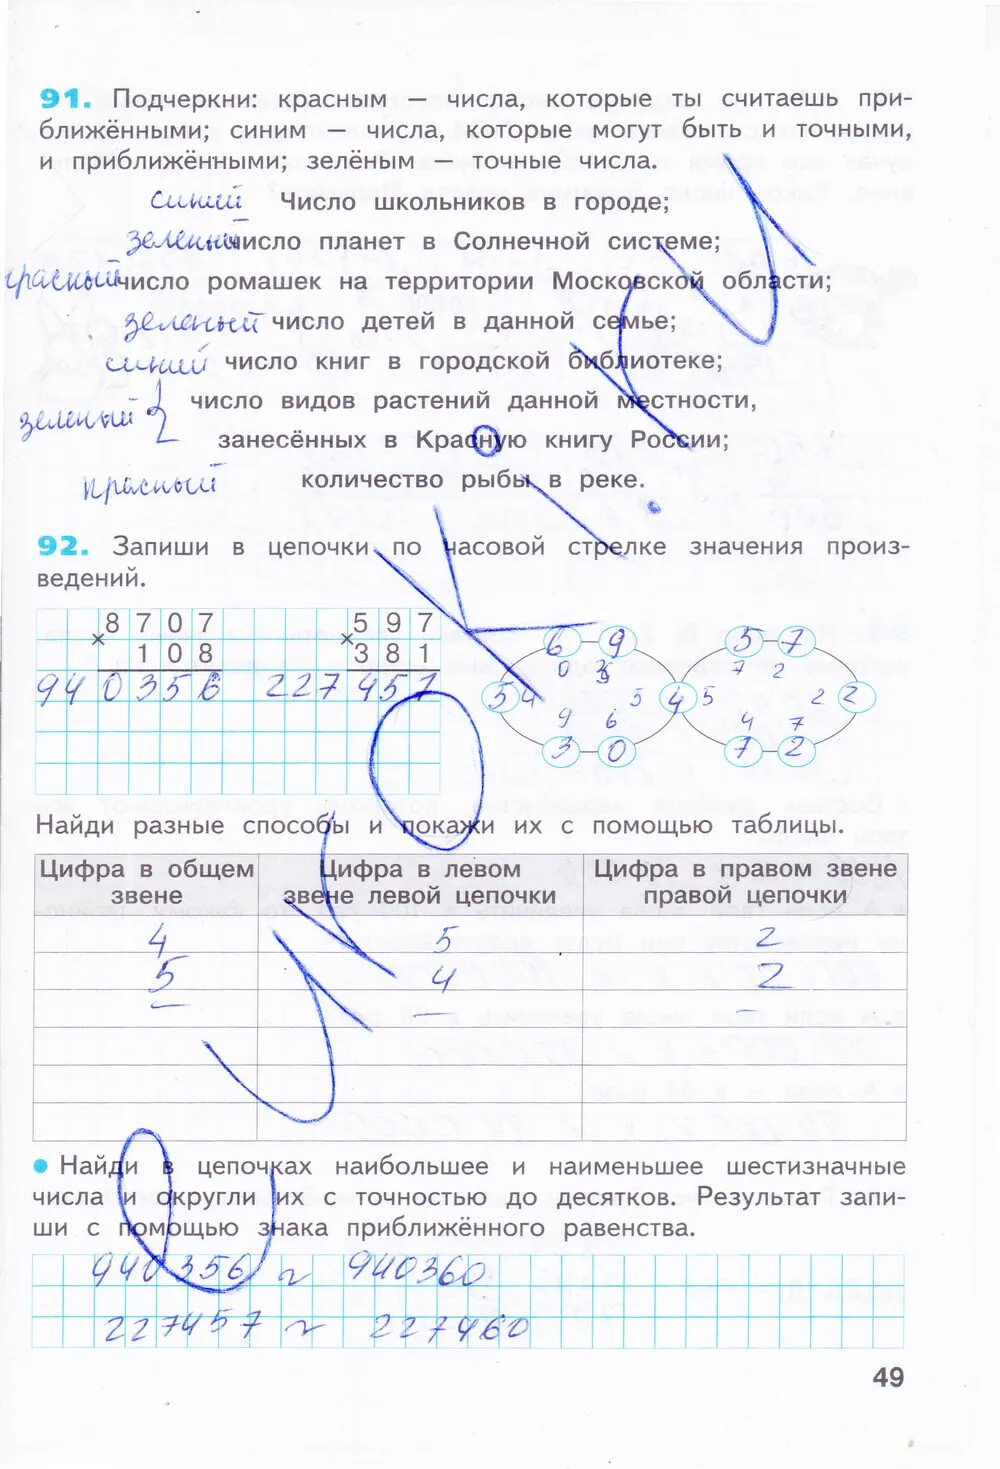 91. Подчеркни: красным — числа, которые ты считаешь при-
ближёнными; синим — числа, которые могут быть и точными,
и приближёнными; зелёным — точные числа.
синий Число школьников в городе;
зеленый число планет в Солнечной системе;
красный число ромашек на территории Московской области;
зеленый число детей в данной семье;
синий число книг в городской библиотеке;
зеленый { число видов растений данной местности,
занесённых в Красную книгу России;
красный количество рыбы в реке.
92. Запиши в цепочки по часовой стрелке значения произ-
ведений.
8707 597
× 108 × 381
940356 227457
6 9 5 7
0 3 7 2
5 4 5 4 5 2 2
9 6 4 7
3 0 7 2
Найди разные способы и покажи их с помощью таблицы.
Цифра в общем звене Цифра в левом звене левой цепочки Цифра в правом звене правой цепочки
4 5 2
5 4 2
— — —
• Найди в цепочках наибольшее и наименьшее шестизначные
числа и округли их с точностью до десятков. Результат запи-
ши с помощью знака приближённого равенства.
940356 ~ 940360
227457 ~ 227460
49
e-ykoki.ru